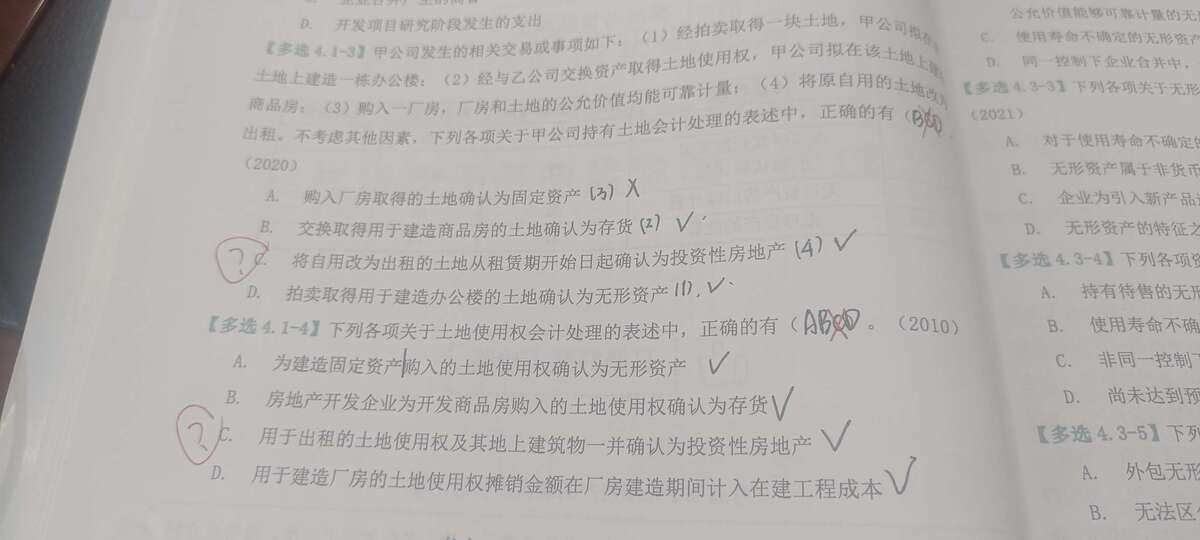 D. 开发项目研究阶段发生的支出
【多选4.1-3】甲公司发生的相关交易或事项如下：（1）经拍卖取得一块土地，甲公司拟在
土地上建造一栋办公楼；（2）经与乙公司交换资产取得土地使用权，甲公司拟在该土地上
商品房；（3）购入一厂房，厂房和土地的公允价值均能可靠计量；（4）将原自用的土地改为
出租。不考虑其他因素，下列各项关于甲公司持有土地会计处理的表述中，正确的有（BCD
（2020）
A. 购入厂房取得的土地确认为固定资产 (3) X
B. 交换取得用于建造商品房的土地确认为存货 (2) ✓
? C. 将自用改为出租的土地从租赁期开始日起确认为投资性房地产 (4) ✓
D. 拍卖取得用于建造办公楼的土地确认为无形资产 (1). ✓
【多选4.1-4】下列各项关于土地使用权会计处理的表述中，正确的有（ABCD。（2010）
A. 为建造固定资产购入的土地使用权确认为无形资产 ✓
B. 房地产开发企业为开发商品房购入的土地使用权确认为存货 ✓
? C. 用于出租的土地使用权及其地上建筑物一并确认为投资性房地产 ✓
D. 用于建造厂房的土地使用权摊销金额在厂房建造期间计入在建工程成本 ✓
公允价值能够可靠计量的无
C. 使用寿命不确定的无形资产
D. 同一控制下企业合并中，
【多选4.3-3】下列各项关于无形
（2021）
A. 对于使用寿命不确定的
B. 无形资产属于非货币
C. 企业为引入新产品
D. 无形资产的特征之
【多选4.3-4】下列各项资
A. 持有待售的无形
B. 使用寿命不确
C. 非同一控制下
D. 尚未达到预
【多选4.3-5】下列
A. 外包无形
B. 无法区分